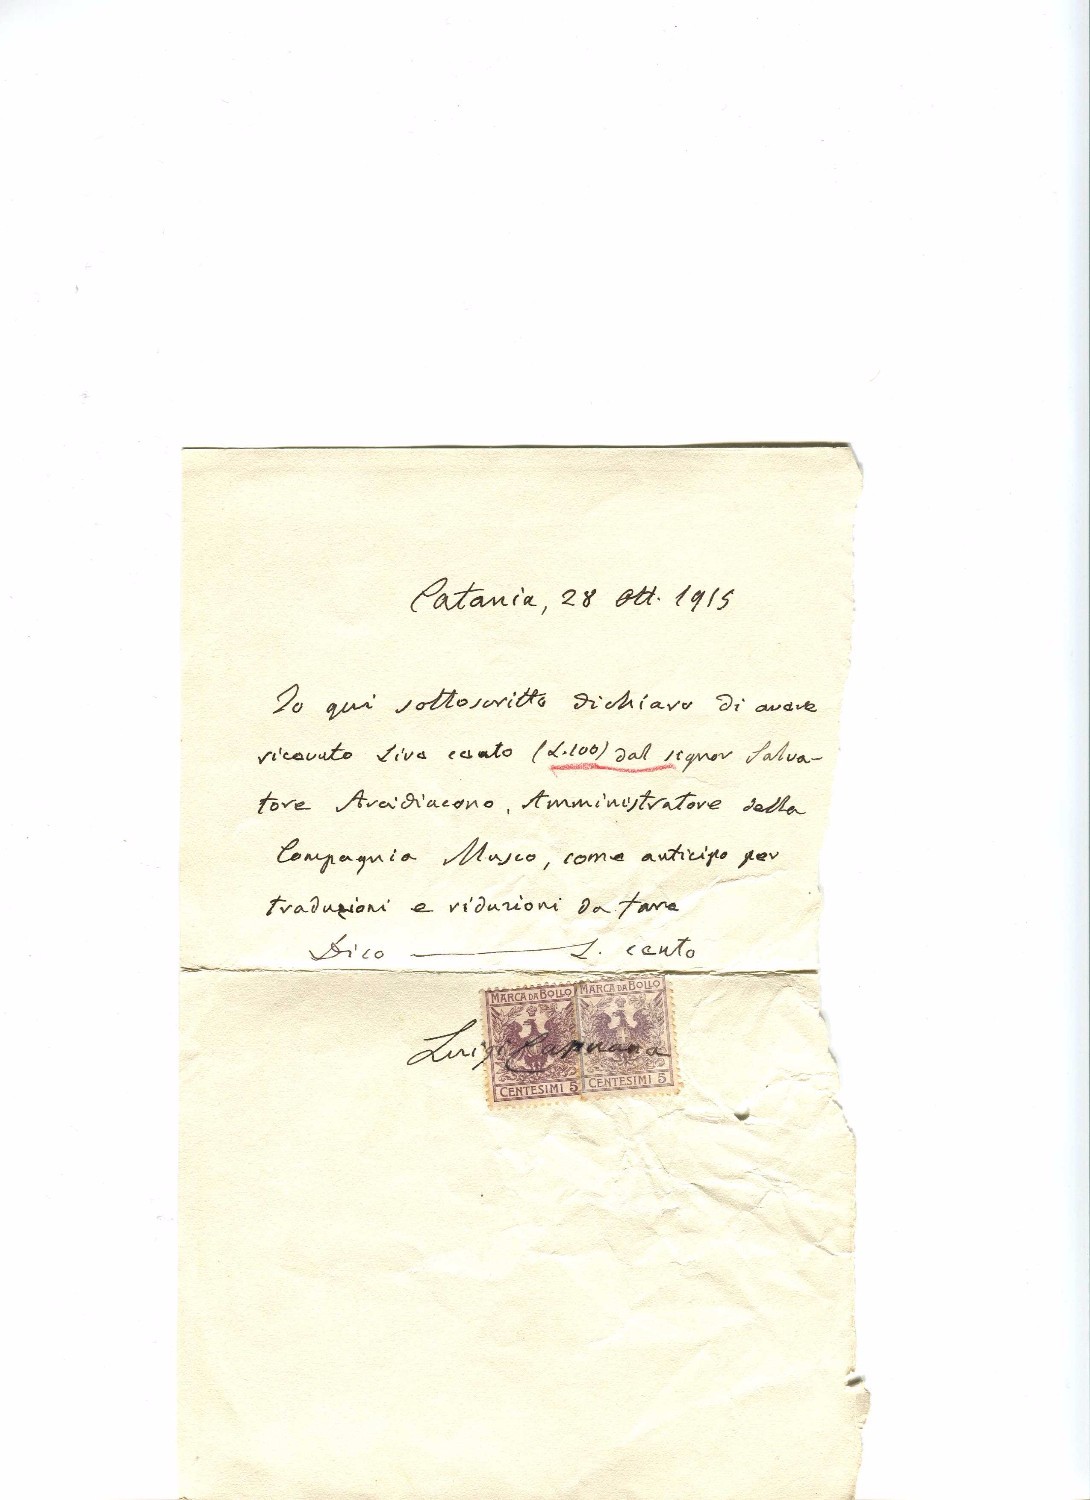 Catania, 28 Ott. 1915
Io qui sottoscritto dichiaro di avere
ricevuto Lire cento (L.100) dal signor Salva-
tore Arcidiacono, Amministratore della
Compagnia Musco, come anticipo per
traduzioni e riduzioni da fare
Dico ——— L. cento
MARCA DA BOLLO MARCA DA BOLLO
Luigi Capuana
CENTESIMI 5 CENTESIMI 5